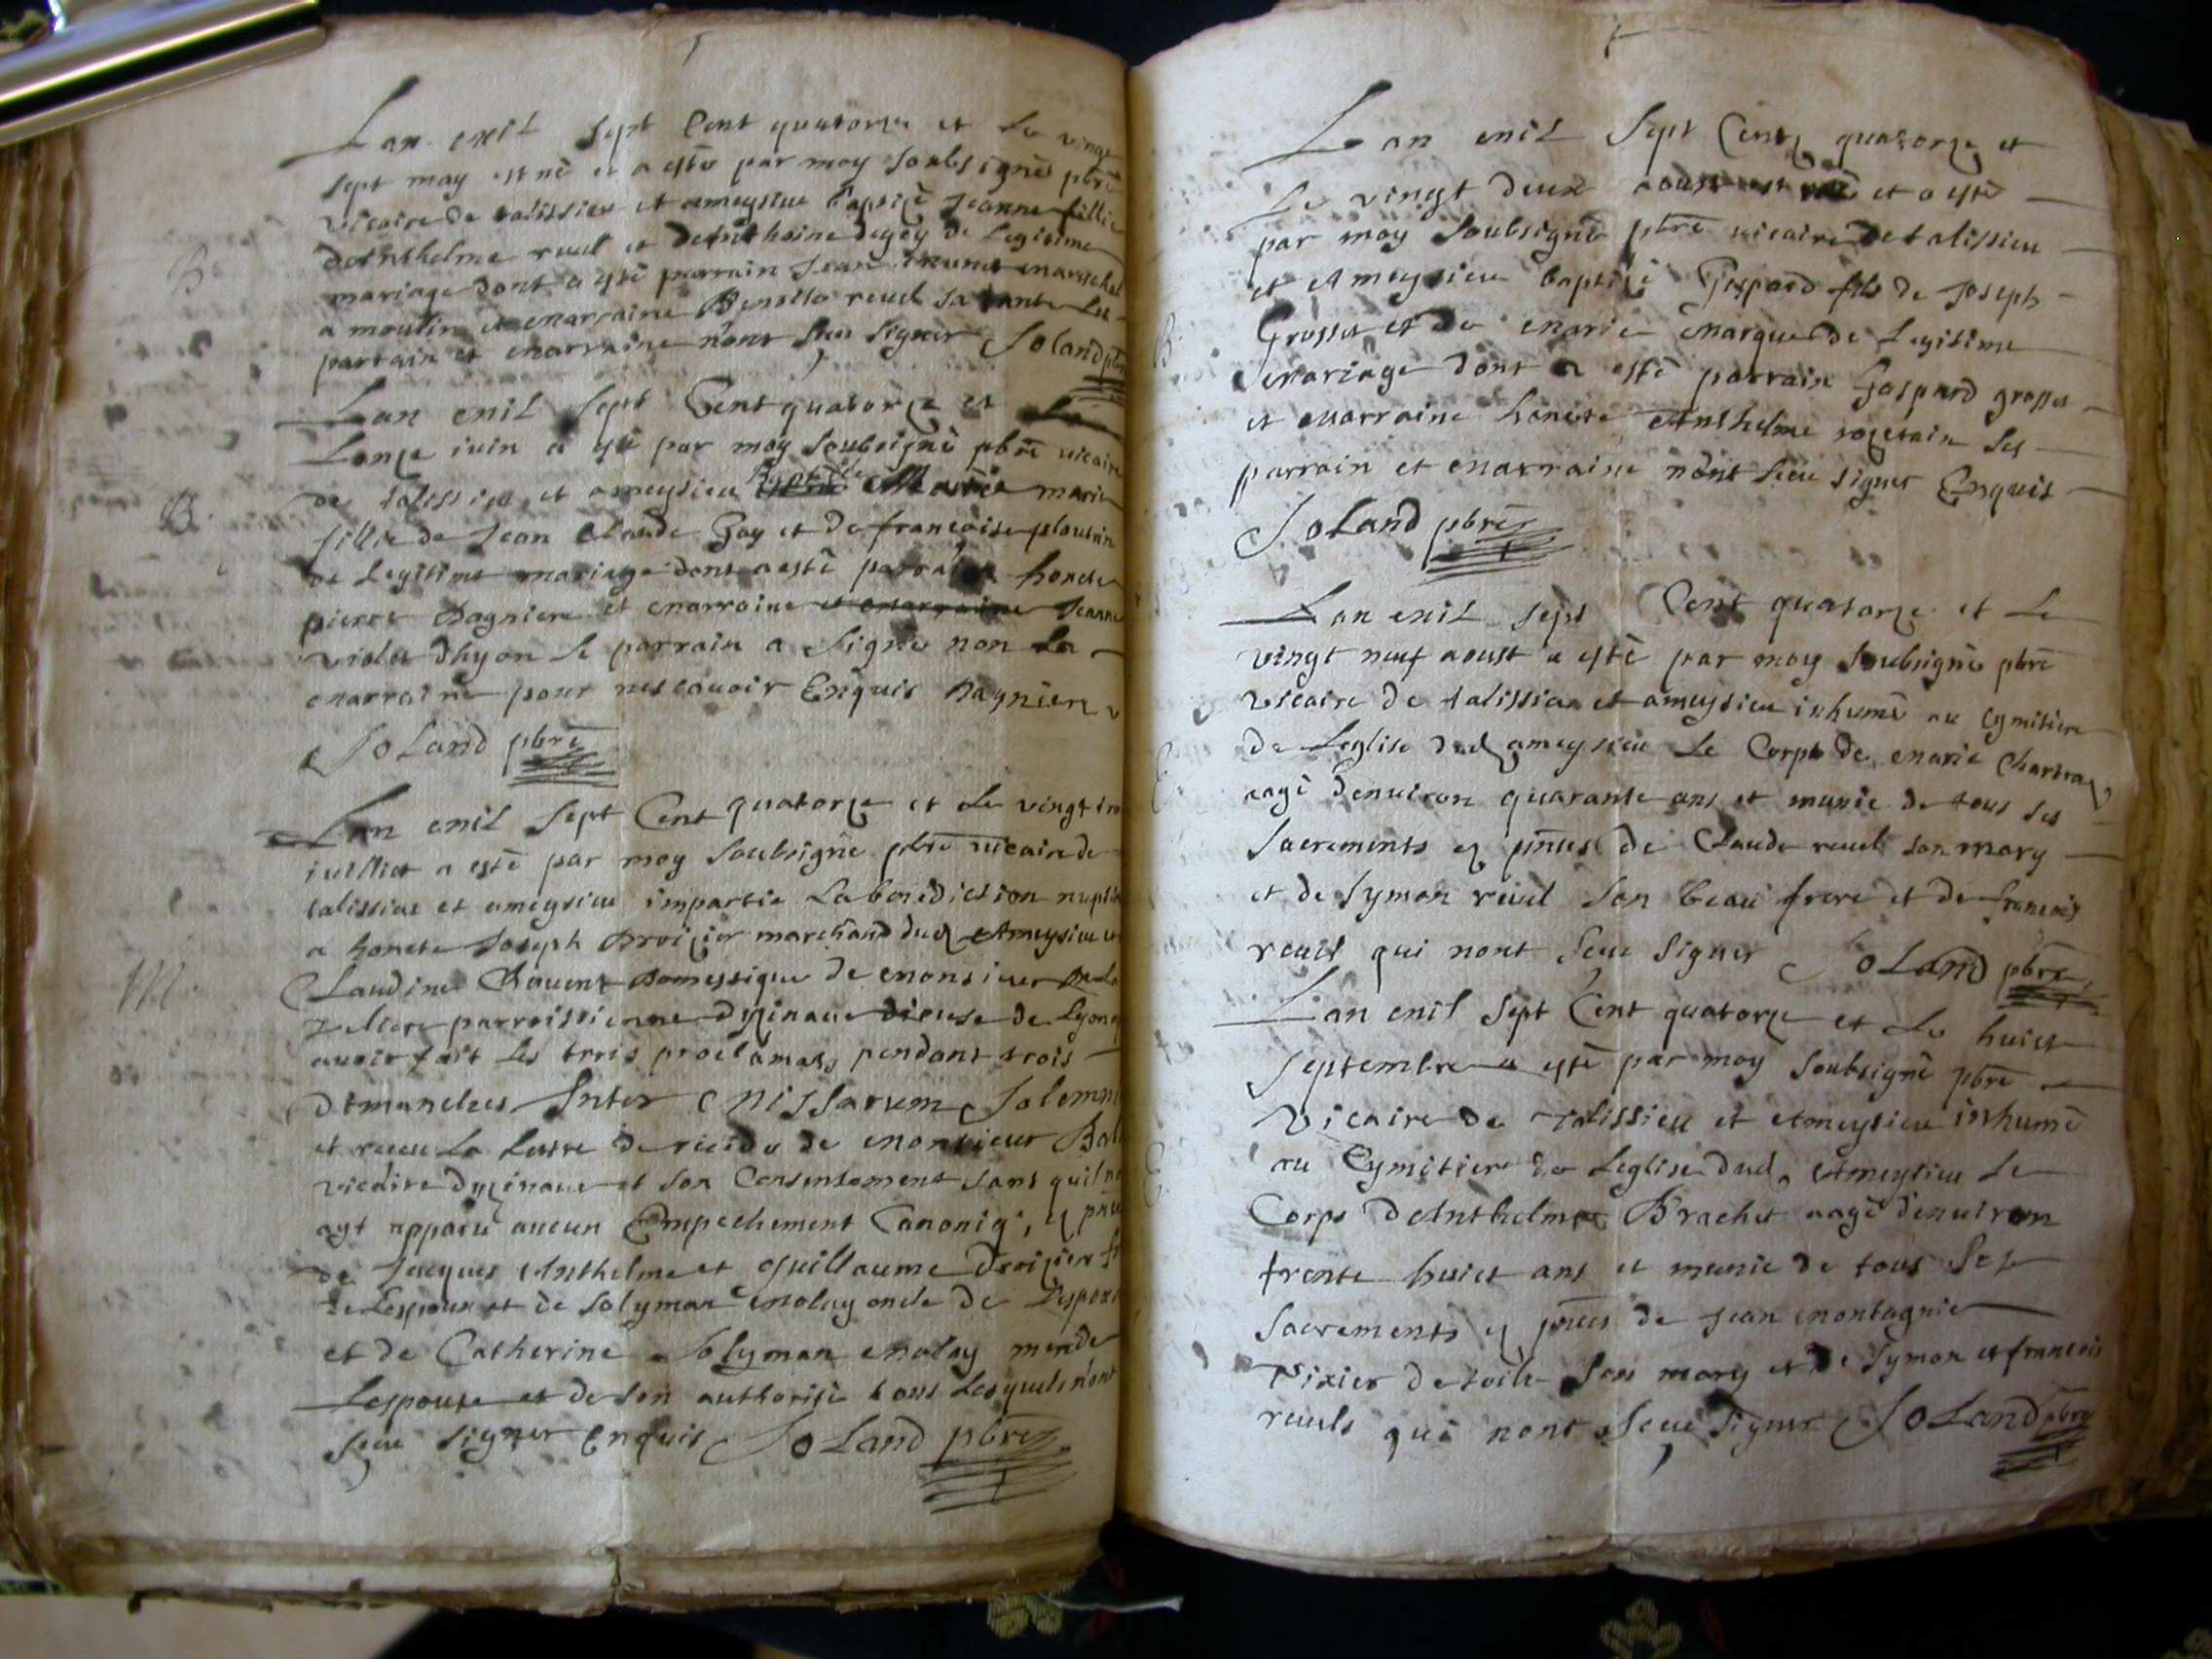 Lan mil sept Cent quatorze et Le vingt
sept may est né et a esté par moy soubsigné pbre
vicaire de talissieu et ameysieu baptizé Jeanne fillie
dAnthelme reuel et dAnthoine de legitime
mariage dont a esté parrain Jean marechal
a moulin et marraine Benoite reuel sa tante Les
parrain et marraine nont seu signer Joland pbre
B.
Lan mil sept Cent quatorze et
Lonze iuin a esté par moy soubsigné pbre vicaire
de talissieu et ameysieu Baptizé marie
fillie de Jean Claude Gay et de francoise ploutin
de Legitime mariage dont a esté parrain honeste
pierre Dagniere et marraine et marraine Jeanne
violet dhyon le parrain a signé non La
marraine pour nescauoir Enquis Dagniere
Joland pbre
B.
Lan mil sept Cent quatorze et Le vingt tro
iuilliet a esté par moy soubsigné pbre vicaire de
talissieu et ameysieu impartie La benediction nuptia
a honeste Joseph Droizier marchand dud Ameysieu et
Claudine Chauent Domestique de monsieur
parroissienne diocese de Lyon
auoir fait les trois proclamats pendant trois
dimanches Inter Missarum Solemn
et receu La Lettre de recedo de monsieur
vicaire et son Consentement sans quil
ayt apparu aucun Empechement Canoniq; e pnce
de Jacques Anthelme et guillaume Droizier
de Lespoux et de Solyman molay oncle de Lespouse
et de Catherine Solyman molay
Lespouse et de son authorité tous Lesquels nont
seeu signer Enquis Joland pbre
M.
Lan mil sept Cent quatorze et
Le vingt deux aoust est né et a esté
par moy soubsigné pbre vicaire de talissieu
et Ameysieu baptizé Gaspard fils de Joseph
Grosset et de marie marque de Legitime
mariage dont a esté parrain Gaspard grosset
et marraine honeste Anthelme Les
parrain et marraine nont seeu signer Enquis
Joland pbre
B.
Lan mil sept Cent quatorze et Le
vingt neuf aoust a esté par moy soubsigné pbre
vicaire de talissieu et ameysieu inhumé au Cymitiere
de Leglise dud ameysieu Le Corps de marie Charra
aagé denuiron quarante ans et munie de tous ses
sacrements e pnces de Claude reuel son mary
et de symon reuel son beau frere et de francois
reuel qui nont seeu signer Joland pbre
Lan mil sept Cent quatorze et Le huict
septembre a esté par moy soubsigné pbre
vicaire de Talissieu et Ameysieu inhumé
au Cymitiere de Leglise dud Ameysieu Le
Corps dAnthelme Brachet aagé denuiron
trente huict ans et munie de tous ses
sacrements e pnces de Jean montagnie
Tixier de toile son mary et de symon et francois
reuels qui nont seeu signer Joland pbre